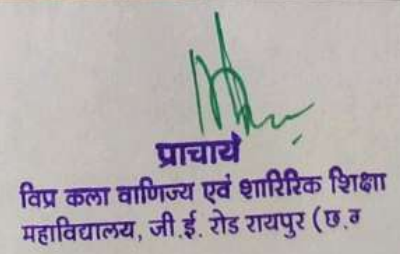 प्राचार्य
विप्र कला वाणिज्य एवं शारिरिक शिक्षा
महाविद्यालय, जी.ई. रोड रायपुर (छ.ग